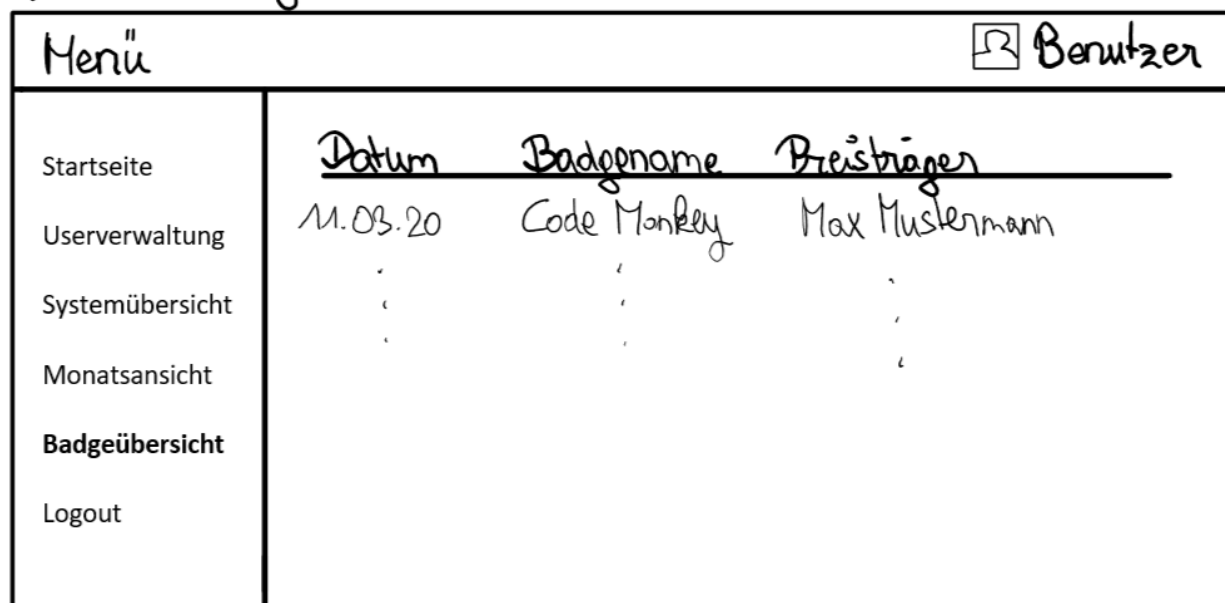 Menü
Benutzer
Startseite
Userverwaltung
Systemübersicht
Monatsansicht
Badgeübersicht
Logout
Datum Badgename Preisträger
11.03.20 Code Monkey Max Mustermann